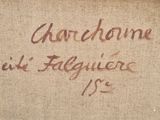 Charchoune
cité Falguiére
15e